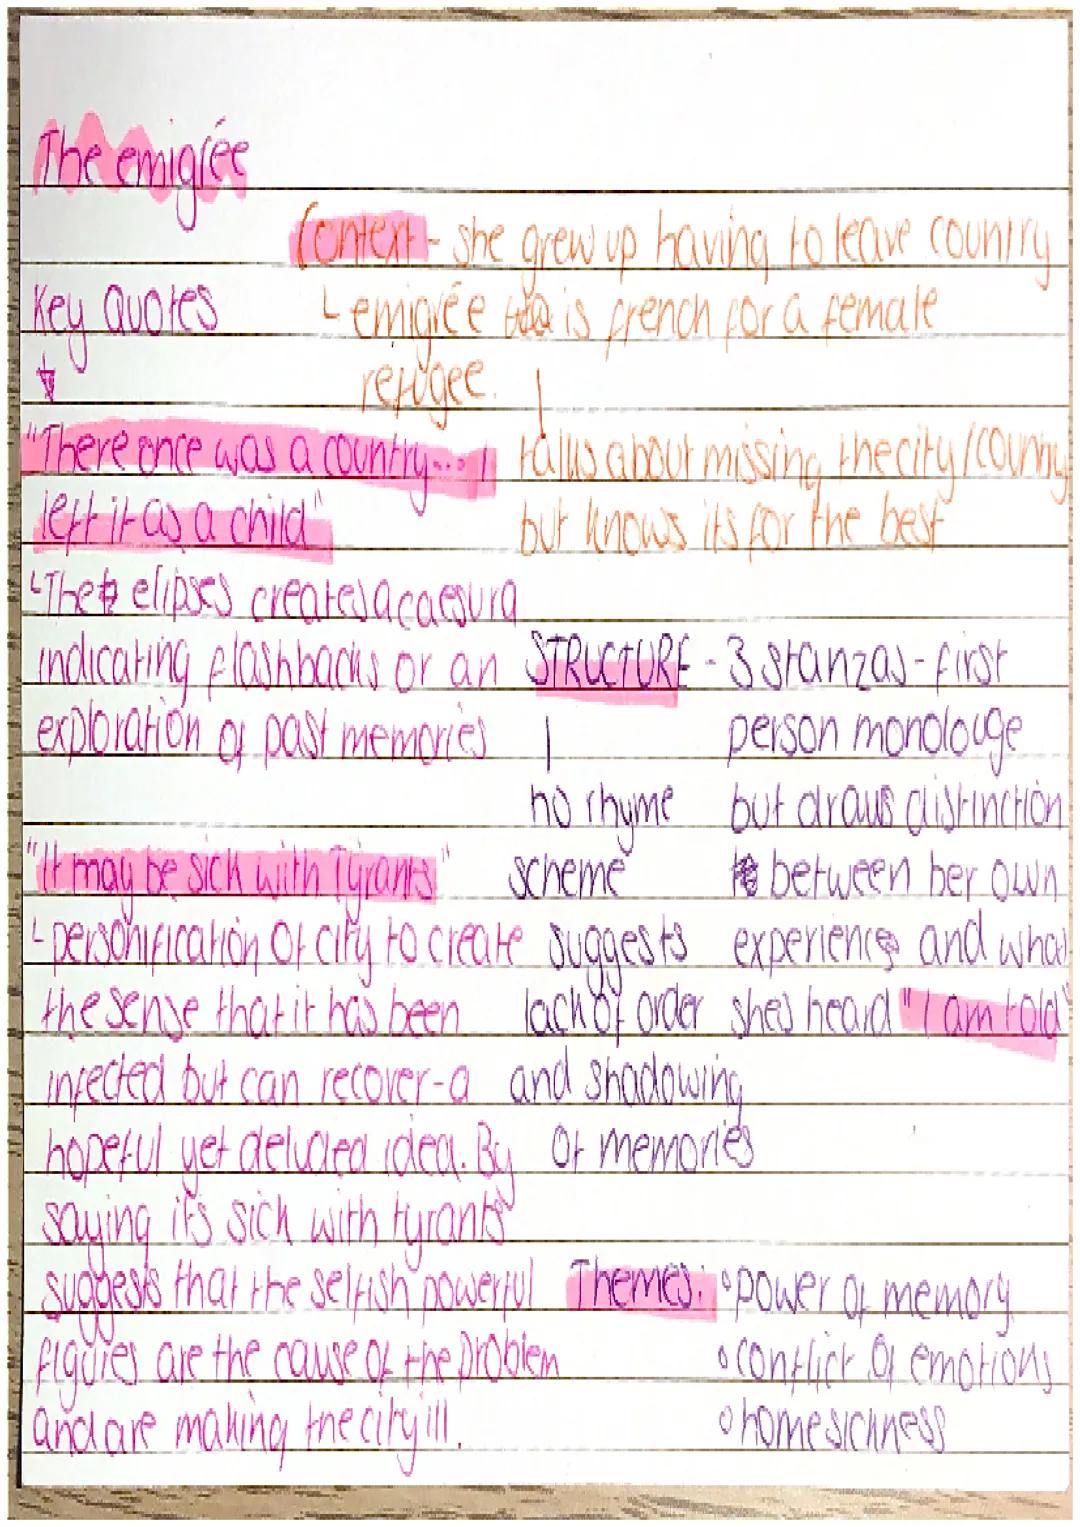 The emigrée
Context - she grew up having to leave country
Key Quotes
└ emigrée is french for a female
refugee.
talks about missing the city/country
but knows its for the best
"There once was a country... I
left it as a child"
└ The elipses creates a caesura
indicating flashbacks or an
exploration of past memories
"It may be sick with Tyrants"
└ personification of city to create
the sense that it has been
infected but can recover - a
hopeful yet deluded idea. By
saying it's sick with tyrants
suggests that the selfish powerful
figures are the cause of the problem
and are making the city ill.
STRUCTURE - 3 stanzas - first
person monolouge
but draws distinction
between her own
experience and what
shes heard "I am told"
no rhyme
scheme
suggests
lack of order
and shadowing
of memories
Themes: ∘ power of memory
∘ conflict of emotions
∘ homesickness